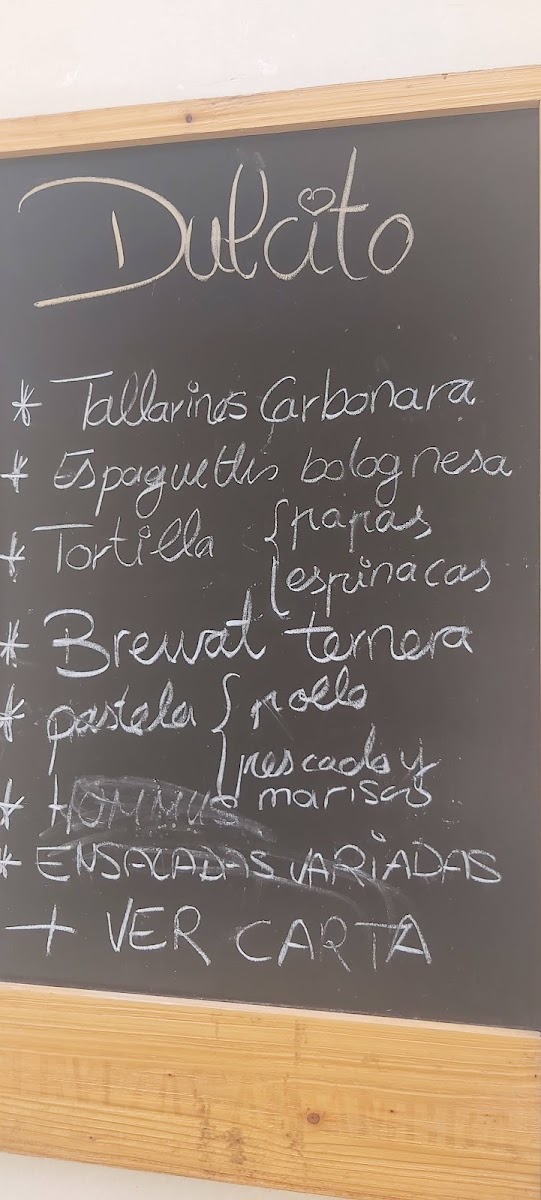 Dulcito
* Tallarines Carbonara
* Espaguethis bolognesa
* Tortilla { papas
{ espinacas
* Brewat ternera
* pastela { pollo
{ pescado y
mariscos
* HOMMUS
* ENSALADAS VARIADAS
+ VER CARTA